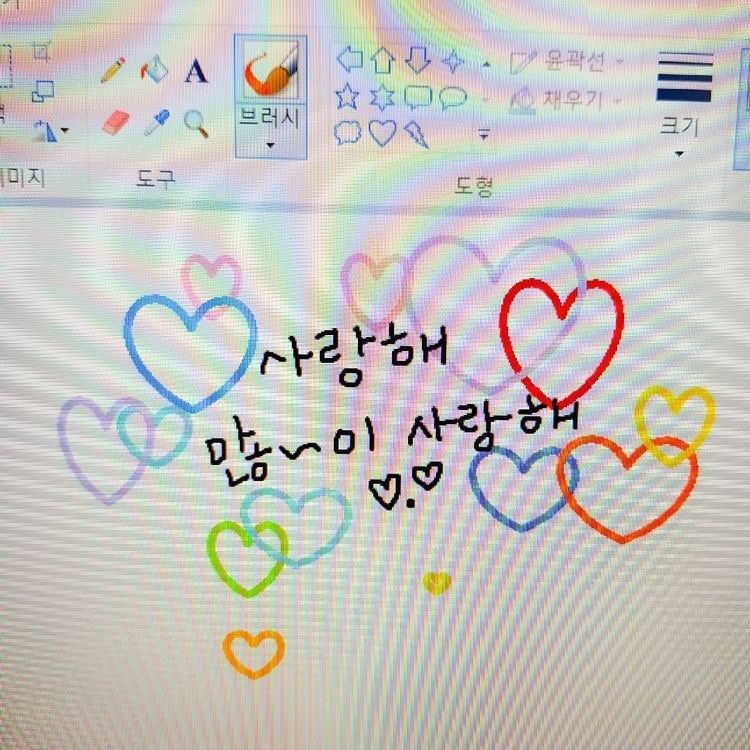 A
브러시
윤곽선
채우기
크기
이미지
도구
도형
사랑해
많~이 사랑해
♡.♡